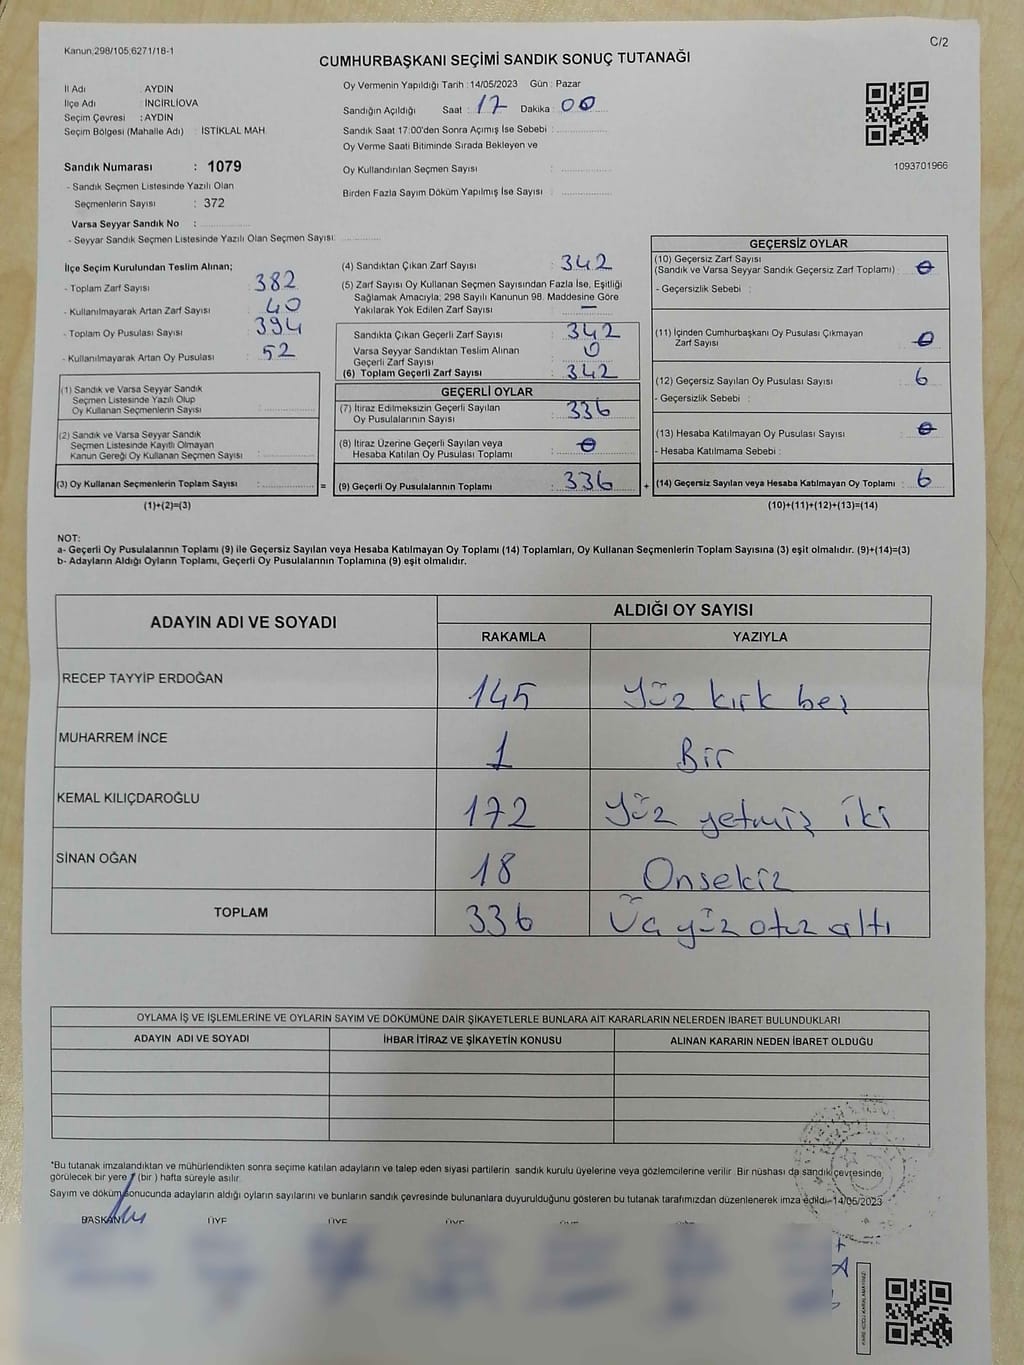 Kanun:298/105,6271/18-1
C/2
CUMHURBAŞKANI SEÇİMİ SANDIK SONUÇ TUTANAĞI
İl Adı : AYDIN
İlçe Adı : İNCİRLİOVA
Seçim Çevresi : AYDIN
Seçim Bölgesi (Mahalle Adı) : İSTİKLAL MAH.
Oy Vermenin Yapıldığı Tarih : 14/05/2023 Gün : Pazar
Sandığın Açıldığı Saat : 17 Dakika : 00
Sandık Saat 17:00'den Sonra Açımış İse Sebebi :
Oy Verme Saati Bitiminde Sırada Bekleyen ve
Oy Kullandırılan Seçmen Sayısı :
Birden Fazla Sayım Döküm Yapılmış İse Sayısı :
1093701966
Sandık Numarası : 1079
- Sandık Seçmen Listesinde Yazılı Olan
Seçmenlerin Sayısı : 372
Varsa Seyyar Sandık No :
- Seyyar Sandık Seçmen Listesinde Yazılı Olan Seçmen Sayısı:
İlçe Seçim Kurulundan Teslim Alınan;
- Toplam Zarf Sayısı : 382
- Kullanılmayarak Artan Zarf Sayısı : 40
- Toplam Oy Pusulası Sayısı : 394
- Kullanılmayarak Artan Oy Pusulası : 52
(1) Sandık ve Varsa Seyyar Sandık
Seçmen Listesinde Yazılı Olup
Oy Kullanan Seçmenlerin Sayısı :
(2) Sandık ve Varsa Seyyar Sandık
Seçmen Listesinde Kayıtlı Olmayan
Kanun Gereği Oy Kullanan Seçmen Sayısı :
(3) Oy Kullanan Seçmenlerin Toplam Sayısı : =
(1)+(2)=(3)
(4) Sandıktan Çıkan Zarf Sayısı : 342
(5) Zarf Sayısı Oy Kullanan Seçmen Sayısından Fazla İse, Eşitliği
Sağlamak Amacıyla; 298 Sayılı Kanunun 98. Maddesine Göre
Yakılarak Yok Edilen Zarf Sayısı : —
Sandıkta Çıkan Geçerli Zarf Sayısı : 342
Varsa Seyyar Sandıktan Teslim Alınan
Geçerli Zarf Sayısı : 0
(6) Toplam Geçerli Zarf Sayısı : 342
GEÇERLİ OYLAR
(7) İtiraz Edilmeksizin Geçerli Sayılan
Oy Pusulalarının Sayısı : 336
(8) İtiraz Üzerine Geçerli Sayılan veya
Hesaba Katılan Oy Pusulası Toplamı : 0
(9) Geçerli Oy Pusulalarının Toplamı : 336 +
GEÇERSİZ OYLAR
(10) Geçersiz Zarf Sayısı
(Sandık ve Varsa Seyyar Sandık Geçersiz Zarf Toplamı) : 0
- Geçersizlik Sebebi :
(11) İçinden Cumhurbaşkanı Oy Pusulası Çıkmayan
Zarf Sayısı : 0
(12) Geçersiz Sayılan Oy Pusulası Sayısı : 6
- Geçersizlik Sebebi :
(13) Hesaba Katılmayan Oy Pusulası Sayısı : 0
- Hesaba Katılmama Sebebi :
(14) Geçersiz Sayılan veya Hesaba Katılmayan Oy Toplamı : 6
(10)+(11)+(12)+(13)=(14)
NOT:
a- Geçerli Oy Pusulalarının Toplamı (9) ile Geçersiz Sayılan veya Hesaba Katılmayan Oy Toplamı (14) Toplamları, Oy Kullanan Seçmenlerin Toplam Sayısına (3) eşit olmalıdır. (9)+(14)=(3)
b- Adayların Aldığı Oyların Toplamı, Geçerli Oy Pusulalarının Toplamına (9) eşit olmalıdır.
ADAYIN ADI VE SOYADI
ALDIĞI OY SAYISI
RAKAMLA YAZIYLA
RECEP TAYYİP ERDOĞAN 145 Yüz kırk beş
MUHARREM İNCE 1 Bir
KEMAL KILIÇDAROĞLU 172 Yüz yetmiş iki
SİNAN OĞAN 18 Onsekiz
TOPLAM 336 Üç yüz otuz altı
OYLAMA İŞ VE İŞLEMLERİNE VE OYLARIN SAYIM VE DÖKÜMÜNE DAİR ŞİKAYETLERLE BUNLARA AİT KARARLARIN NELERDEN İBARET BULUNDUKLARI
ADAYIN ADI VE SOYADI İHBAR İTİRAZ VE ŞİKAYETİN KONUSU ALINAN KARARIN NEDEN İBARET OLDUĞU
*Bu tutanak imzalandıktan ve mühürlendikten sonra seçime katılan adayların ve talep eden siyasi partilerin sandık kurulu üyelerine veya gözlemcilerine verilir. Bir nüshası da sandık çevresinde
görülecek bir yere 1 (bir ) hafta süreyle asılır.
Sayım ve döküm sonucunda adayların aldığı oyların sayılarını ve bunların sandık çevresinde bulunanlara duyurulduğunu gösteren bu tutanak tarafımızdan düzenlenerek imza edildi. 14/05/2023
BAŞKAN ÜYE ÜYE ÜYE ÜYE